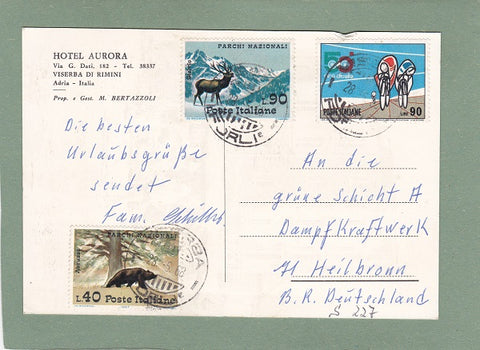 HOTEL AURORA
Via G. Dati, 182 - Tel. 38337
VISERBA DI RIMINI
Adria - Italia
Prop. e Gest. M. BERTAZZOLI
PARCHI NAZIONALI
L.90
Poste Italiane
50
POSTE ITALIANE
LIRE 90
FORLI
Die besten
Urlaubsgrüße
sendet
Fam.
An die
grüne Schicht A
Dampfkraftwerk
71 Heilbronn
B.R. Deutschland
S 227
PARCHI NAZIONALI
Abruzzo
L.40 Poste Italiane